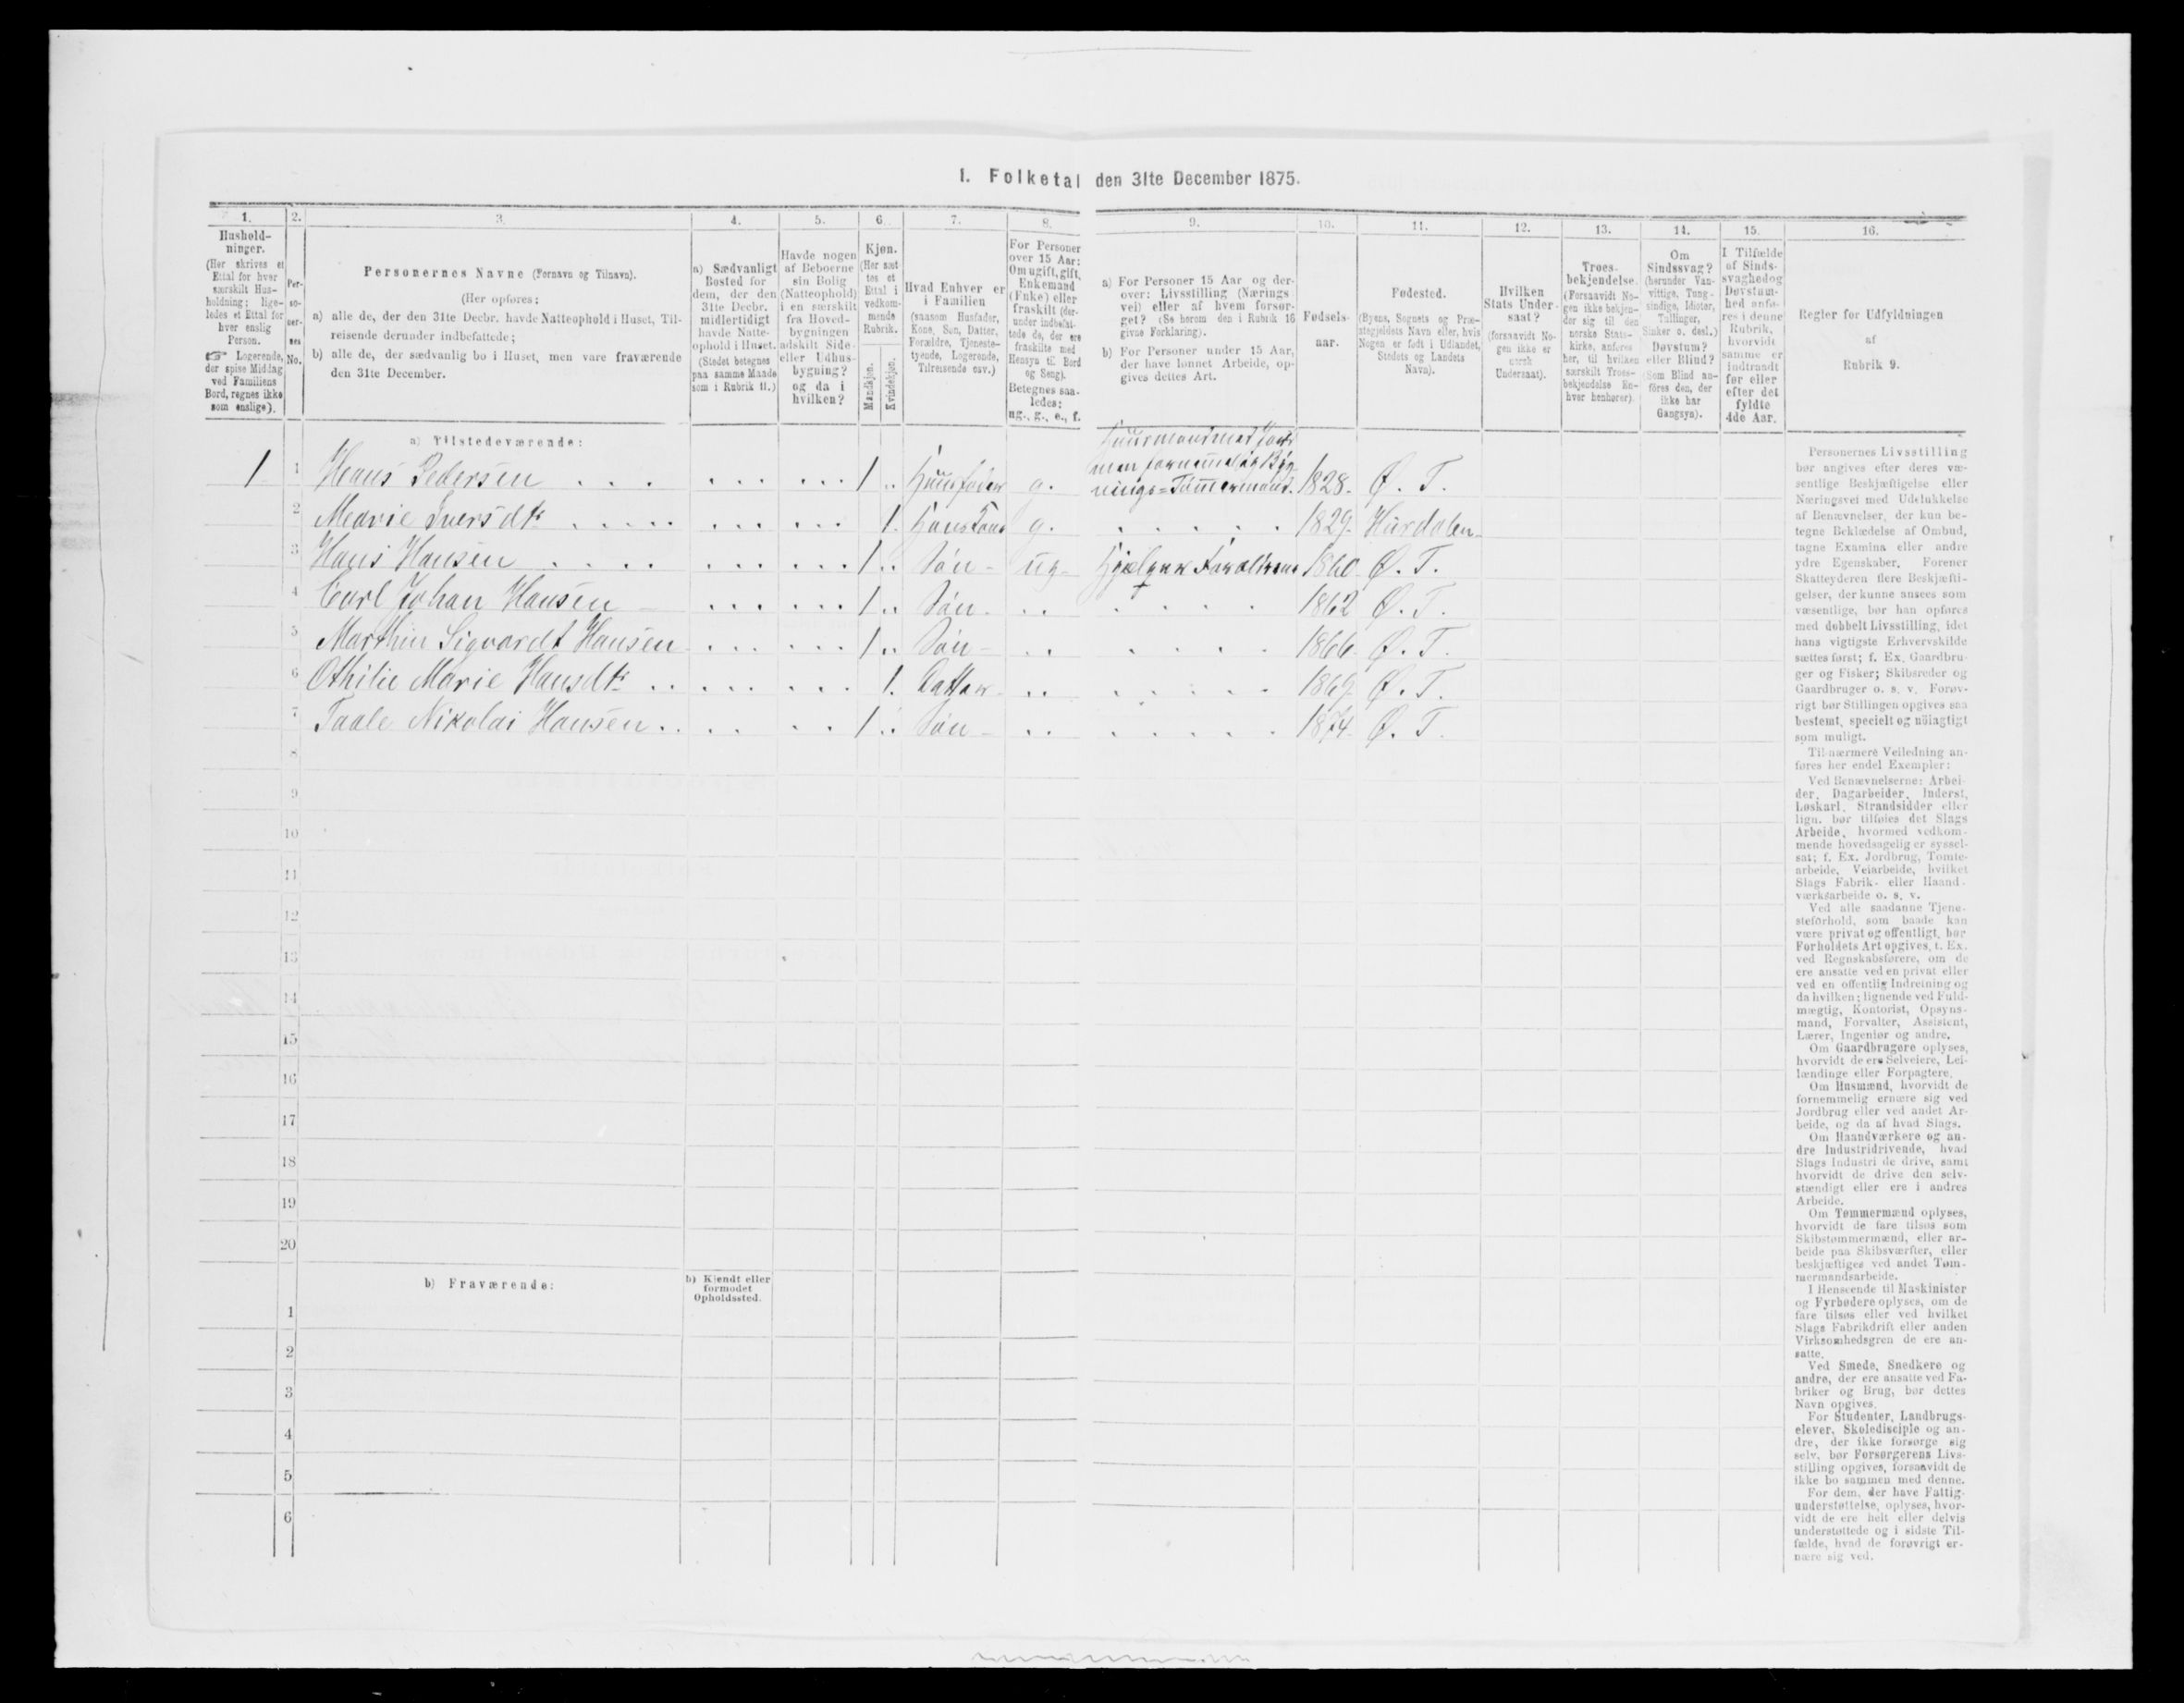 1. Folketal den 31te December 1875.
1. 2. 3. 4. 5. 6. 7. 8. 9. 10. 11. 12. 13. 14. 15. 16.
Hushold-
ninger.
(Her skrives et
Ettal for hver
særskilt Hus-
holdning; lige-
ledes et Ettal for
hver enslig
Person.
☞ Logerende,
der spise Middag
ved Familiens
Bord, regnes ikke
som enslige).
Per-
so-
ner-
nes
No.
Personernes Navne (Fornavn og Tilnavn).
(Her opføres:
a) alle de, der den 31te Decbr. havde Natteophold i Huset, Til-
reisende derunder indbefattede;
b) alle de, der sædvanlig bo i Huset, men vare fraværende
den 31te December.
a) Sædvanligt
Bosted for
dem, der den
31te Decbr.
midlertidigt
havde Natte-
ophold i Huset.
(Stedet betegnes
paa samme Maade
som i Rubrik 11.)
Havde nogen
af Beboerne
sin Bolig
(Natteophold)
i en særskilt
fra Hoved-
bygningen
adskilt Side-
eller Udhus-
bygning?
og da i
hvilken?
Kjøn.
(Her sæt-
tes et
Ettal i
vedkom-
mende
Rubrik.
Mandkjøn.
Kvindekjøn.
Hvad Enhver er
i Familien
(saasom Husfader,
Kone, Søn, Datter,
Forældre, Tjeneste-
tyende, Logerende,
Tilreisende osv.)
For Personer
over 15 Aar:
Om ugift, gift,
Enkemand
(Enke) eller
fraskilt (der-
under indbefat-
tede de, der ere
fraskilte med
Hensyn til Bord
og Seng).
Betegnes saa-
ledes:
ug., g., e., f.
a) For Personer 15 Aar og der-
over: Livsstilling (Nærings-
vei) eller af hvem forsør-
get? (Se herom den i Rubrik 16
givne Forklaring).
b) For Personer under 15 Aar,
der have lønnet Arbeide, op-
gives dettes Art.
Fødsels-
aar.
Fødested.
(Byens, Sognets og Præ-
stegjeldets Navn eller, hvis
Nogen er født i Udlandet,
Stedets og Landets
Navn).
Hvilken
Stats Under-
saat?
(forsaavidt No-
gen ikke er
norsk
Undersaat).
Troes-
bekjendelse.
(Forsaavidt No-
gen ikke bekjen-
der sig til den
norske Stats-
kirke, anføres
her, til hvilken
særskilt Troes-
bekjendelse En-
hver henhører).
Om
Sindssvag?
(herunder Van-
vittige, Tung-
sindige, Idioter,
Tullinger,
Sinker o. desl.)
Døvstum?
eller Blind?
(Som Blind an-
føres den, der
ikke har
Gangsyn).
I Tilfælde
af Sinds-
svaghed og
Døvstum-
hed anfø-
res i denne
Rubrik,
hvorvidt
samme er
indtraadt
før eller
efter det
fyldte
4de Aar.
Regler for Udfyldningen
af
Rubrik 9.
a) Tilstedeværende:
Huusmand med Jord
men fornemmelig Byg-
1 1 Hans Pedersen 1 Huusfader g. nings=Tømmermand. 1828. Ø. T.
2 Marie Iversdtr 1. Hans Kone g. 1829. Hurdalen
3 Hans Hansen 1 Søn ug. Hjælper Forældrene 1860 Ø. T.
4 Carl Johan Hansen 1 Søn 1862 Ø. T.
5 Marthin Sigvardt Hansen 1 Søn 1866. Ø. T.
6 Othilie Marie Hansdtr 1. Datter 1869. Ø. T.
7 Taale Nikolai Hansen 1 Søn 1874. Ø. T.
8
9
10
11
12
13
14
15
16
17
18
19
20
b) Fraværende:
b) Kjendt eller
formodet
Opholdssted.
1
2
3
4
5
6
Personernes Livsstilling
bør angives efter deres væ-
sentlige Beskjæftigelse eller
Næringsvei med Udelukkelse
af Benævnelser, der kun be-
tegne Beklædelse af Ombud,
tagne Examina eller andre
ydre Egenskaber. Forener
Skatteyderen flere Beskjæfti-
gelser, der kunne ansees som
væsentlige, bør han opføres
med dobbelt Livsstilling, idet
hans vigtigste Erhvervskilde
sættes først; f. Ex. Gaardbru-
ger og Fisker; Skibsreder og
Gaardbruger o. s. v. Forøv-
rigt bør Stillingen opgives saa
bestemt, specielt og nøiagtigt
som muligt.
Til nærmere Veiledning an-
føres her endel Exempler:
Ved Benævnelserne: Arbei-
der, Dagarbeider, Inderst,
Løskarl, Strandsidder eller
lign. bør tilføies det Slags
Arbeide, hvormed vedkom-
mende hovedsagelig er syssel-
sat; f. Ex. Jordbrug, Tomte-
arbeide, Veiarbeide, hvilket
Slags Fabrik- eller Haand-
værksarbeide o. s. v.
Ved alle saadanne Tjene-
steforhold, som baade kan
være privat og offentligt, bør
Forholdets Art opgives, t. Ex.
ved Regnskabsførere, om de
ere ansatte ved en privat eller
ved en offentlig Indretning og
da hvilken; lignende ved Fuld-
mægtig, Kontorist, Opsyns-
mand, Forvalter, Assistent,
Lærer, Ingeniør og andre.
Om Gaardbrugere oplyses,
hvorvidt de ere Selveiere, Lei-
lændinge eller Forpagtere.
Om Husmænd, hvorvidt de
fornemmelig ernære sig ved
Jordbrug eller ved andet Ar-
beide, og da af hvad Slags.
Om Haandværkere og an-
dre Industridrivende, hvad
Slags Industri de drive, samt
hvorvidt de drive den selv-
stændigt eller ere i andres
Arbeide.
Om Tømmermænd oplyses,
hvorvidt de fare tilsøs som
Skibstømmermænd, eller ar-
beide paa Skibsværfter, eller
beskjæftiges ved andet Tøm-
mermandsarbeide.
I Henseende til Maskinister
og Fyrbødere oplyses, om de
fare tilsøs eller ved hvilket
Slags Fabrikdrift eller anden
Virksomhedsgren de ere an-
satte.
Ved Smede, Snedkere og
andre, der ere ansatte ved Fa-
briker og Brug, bør dettes
Navn opgives.
For Studenter, Landbrugs-
elever, Skoledisciple og an-
dre, der ikke forsørge sig
selv, bør Forsørgerens Livs-
stilling opgives, forsaavidt de
ikke bo sammen med denne.
For dem, der have Fattig-
understøttelse, oplyses, hvor-
vidt de ere helt eller delvis
understøttede og i sidste Til-
fælde, hvad de forøvrigt er-
nære sig ved.